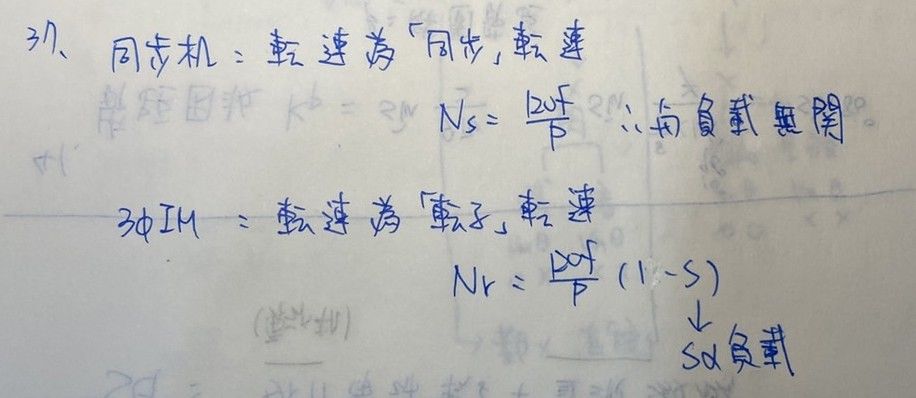 37、同步机：転速為「同步」転速
Ns = 120f/P ∴与負載無関
3φIM：転速為「転子」転速
Nr = 120f/P (1-S)
↓
S∝負載